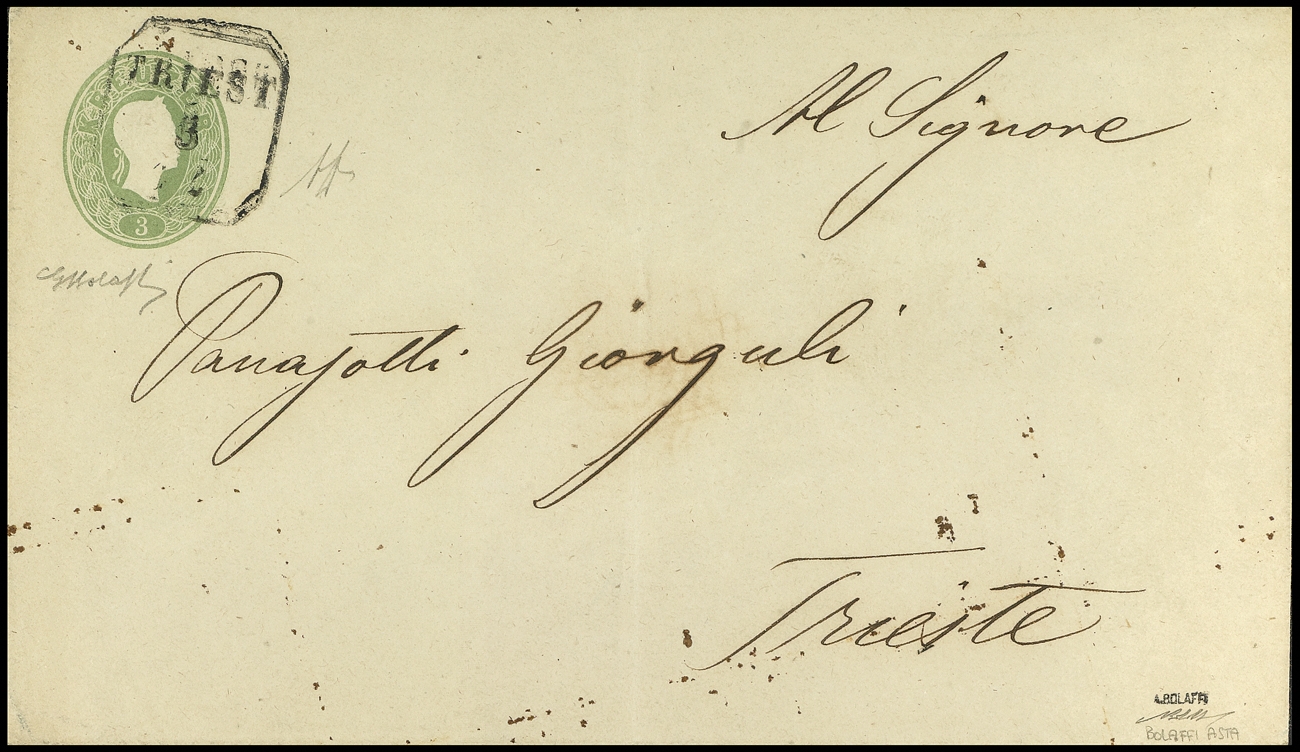 TRIEST
8
12
3
Al Signore
Panajotti Giorguli
Trieste
A.BOLAFFI
BOLAFFI ASTA